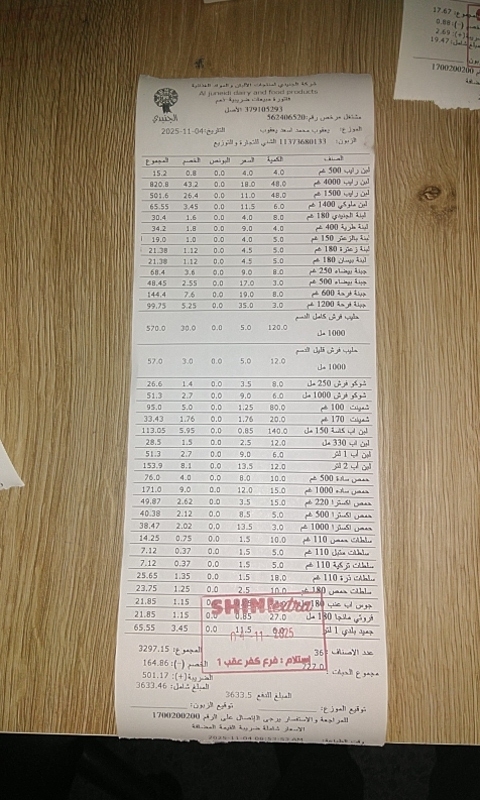 شركة الجنيدي لمنتجات الألبان والمواد الغذائية
Al juneidi dairy and food products
فاتورة مبيعات ضريبية رقم
379105293 الأصل
مشتغل مرخص رقم:562406520
الجنيدي
الموزع: يعقوب محمد اسعد يعقوب التاريخ:04-11-2025
الزبون: 11373680133 الشني للتجارة والتوزيع
الصنف الكمية السعر البونص الخصم المجموع
لبن رايب 500 غم 4.0 4.0 0.0 0.8 15.2
لبن رايب 4000 غم 48.0 18.0 0.0 43.2 820.8
لبن رايب 1500 غم 48.0 11.0 0.0 26.4 501.6
لبن ملوكي 1400 غم 6.0 11.5 0.0 3.45 65.55
لبنة الجنيدي 180 غم 8.0 4.0 0.0 1.6 30.4
لبنة طرية 400 غم 4.0 9.0 0.0 1.8 34.2
لبنة بالزعتر 150 غم 5.0 4.0 0.0 1.0 19.0
لبنة زعترة 180 غم 5.0 4.5 0.0 1.12 21.38
لبنة بيسان 180 غم 5.0 4.5 0.0 1.12 21.38
جبنة بيضاء 250 غم 8.0 9.0 0.0 3.6 68.4
جبنة بيضاء 500 غم 3.0 17.0 0.0 2.55 48.45
جبنة فرحة 600 غم 8.0 19.0 0.0 7.6 144.4
جبنة فرحة 1200 غم 3.0 35.0 0.0 5.25 99.75
حليب فرش كامل الدسم
1000 مل 120.0 5.0 0.0 30.0 570.0
حليب فرش قليل الدسم
1000 مل 12.0 5.0 0.0 3.0 57.0
شوكو فرش 250 مل 8.0 3.5 0.0 1.4 26.6
شوكو فرش 1000 مل 6.0 9.0 0.0 2.7 51.3
شمينت 100 غم 80.0 1.25 0.0 5.0 95.0
شمينت 170 غم 20.0 1.76 0.0 1.76 33.43
لبن اب كاسة 150 مل 140.0 0.85 0.0 5.95 113.05
لبن اب 330 مل 12.0 2.5 0.0 1.5 28.5
لبن أب 1 لتر 6.0 9.0 0.0 2.7 51.3
لبن أب 2 لتر 12.0 13.5 0.0 8.1 153.9
حمص سادة 500 غم 10.0 8.0 0.0 4.0 76.0
حمص ساده 1000 غم 15.0 12.0 0.0 9.0 171.0
حمص اكسترا 220 غم 15.0 3.5 0.0 2.62 49.87
حمص اكسترا 500 غم 5.0 8.5 0.0 2.12 40.38
حمص اكسترا 1000 غم 3.0 13.5 0.0 2.02 38.47
سلطات حمص 110 غم 10.0 1.5 0.0 0.75 14.25
سلطات متبل 110 غم 5.0 1.5 0.0 0.37 7.12
سلطات تركية 110 غم 5.0 1.5 0.0 0.37 7.12
سلطات ذرة 110 غم 18.0 1.5 0.0 1.35 25.65
سلطات حمص 180 غم 10.0 2.5 0.0 1.25 23.75
جوس اب عنب 180 0.0 1.15 21.85
فروتي مانجا 180 مل 27.0 0.85 0.0 1.15 21.85
جميد بلدي 1 لتر 6.0 11.5 0.0 3.45 65.55
SHINI extra
04-11-2025
إستلام : فرع كفر عقب 1
عدد الاصناف :36 المجموع: 3297.15
الخصم (-): 164.86
مجموع الحبات : 727.0 الضريبة(+): 501.17
المبلغ شامل: 3633.46
المبلغ للدفع 3633.5
توقيع الموزع: توقيع الزبون:
للمراجعة والاستفسار يرجى الاتصال على الرقم 1700200200
الاسعار شاملة ضريبة القيمة المضافة
17.67
0.88
2.69
19.47
1700200200